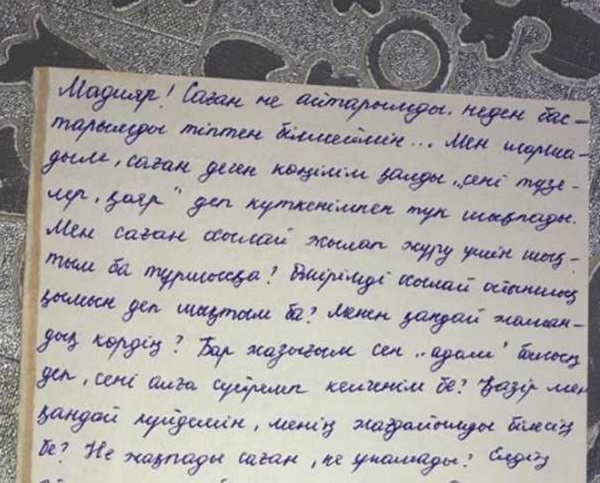 Мадияр! Саған не айтарымды, неден бас-
тарымды тіптен білмеймін... Мен шарша-
дым, саған деген көңілім қалды, „сені түзе-
лер, қояр" деп күткенімнен түк шықпады.
Мен саған осылай жылап жүру үшін шық-
тым ба тұрмысқа? Өмірімді осылай өткіз
қымын деп шықтым ба? Менен қандай жаман-
дық көрдің? Бар жазығым сен „адам" болсың
деп, сені алға сүйремп келгенім бе? Қазір мен
қандай күйдемін, менің жағдайымды білесің
бе? Не жақпады саған, не ұнамады? Елдің